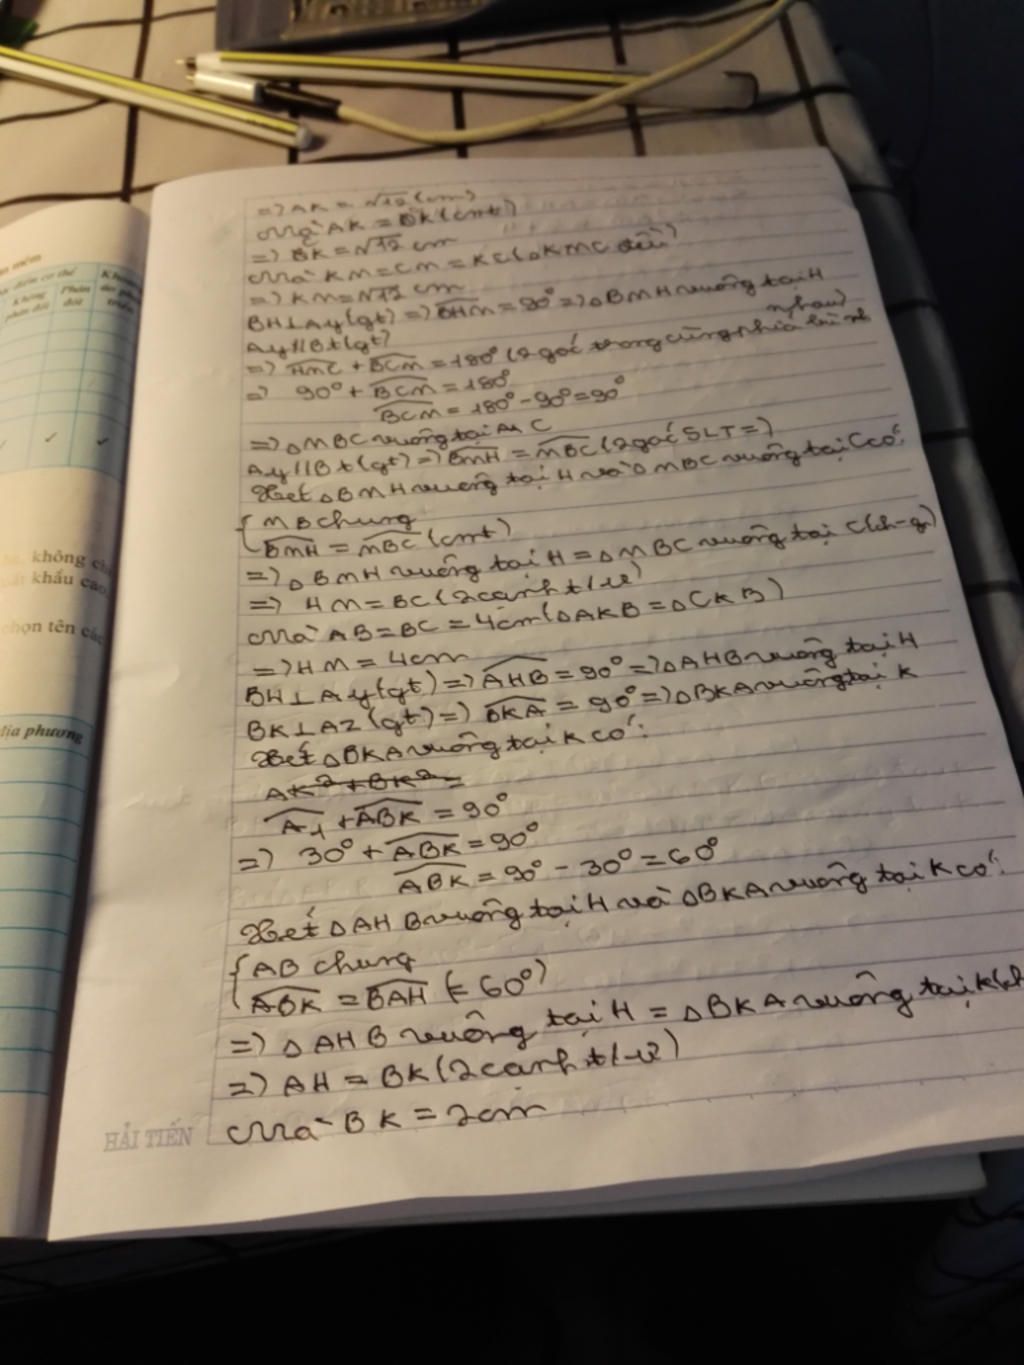 => AK = √12 (cm)
Mà AK = CK (cmt)
=> BK = √12 cm
Mà KM = CM = KC (△KMC đều)
=> KM = √12 cm
BH ⊥ Ay (gt) => BHM = 90° => △BMH vuông tại H
Ay // Bt (gt)
nhau)
=> HMC + BCM = 180° (2 góc trong cùng phía bù nh
=> 90° + BCM = 180°
BCM = 180° - 90° = 90°
=> △MBC vuông tại M C
Ay // Bt (gt) => BMH = MBC (2 góc SLT =)
Xét △BMH vuông tại H và △MBC vuông tại C có:
{ MB chung
BMH = MBC (cmt)
=> △BMH vuông tại H = △MBC vuông tại C (ch-gn)
=> HM = BC (2 cạnh t/ư)
Mà AB = BC = 4cm (△AKB = △CKB)
=> HM = 4cm
BH ⊥ Ay (gt) => AHB = 90° => △AHB vuông tại H
BK ⊥ Az (gt) => BKA = 90° => △BKA vuông tại K
Xét △BKA vuông tại K có:
AK² + BK² =
A₁ + ABK = 90°
=> 30° + ABK = 90°
ABK = 90° - 30° = 60°
Xét △AHB vuông tại H và △BKA vuông tại K có:
{ AB chung
ABK = BAH (= 60°)
=> △AHB vuông tại H = △BKA vuông tại K (ch
=> AH = BK (2 cạnh t/ư)
Mà BK = 2cm
HẢI TIẾN
đặc điểm cơ thể
Không phân đốt
Phân đốt
không
xuất khẩu cao
chọn tên các
địa phương